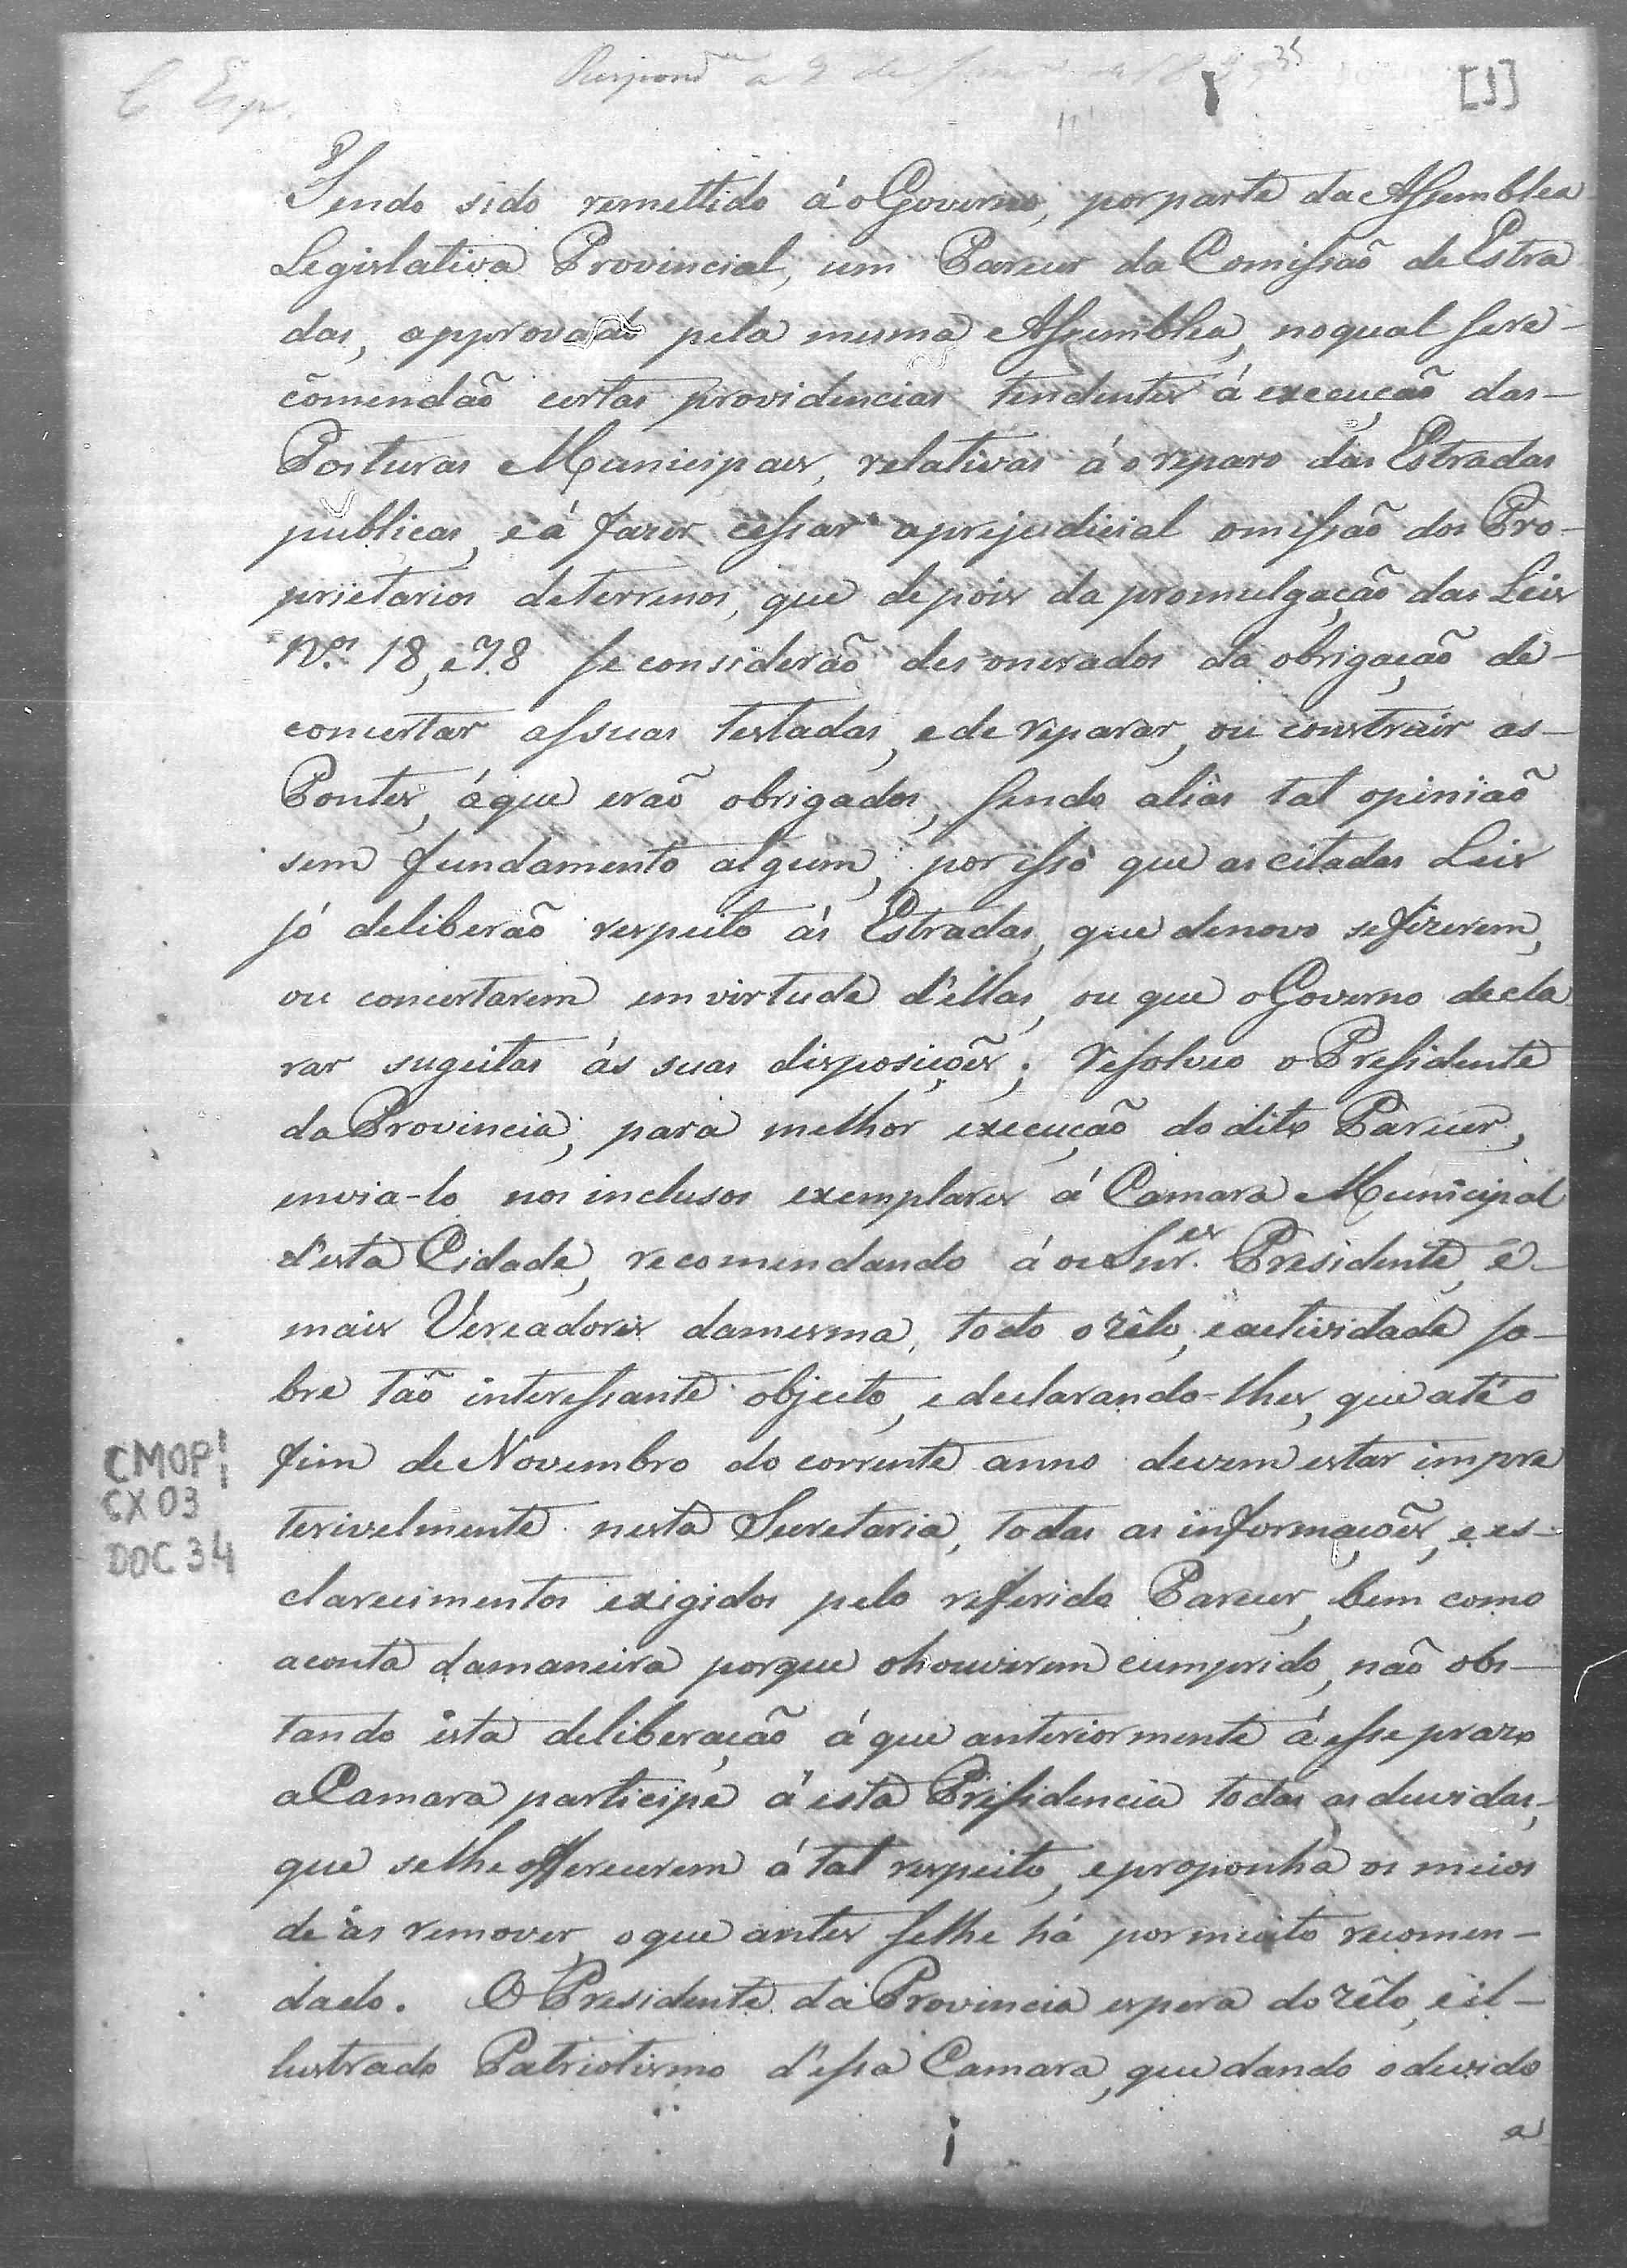 C. Exp.
Respond a 9 de
[1]
Tendo sido remettido á o Governo, por parte da Assemblea
Legislativa Provincial, um Parecer da Comissaõ de Estra
das, approvado pela mesma Assemblea, no qual se re-
cõmendaõ certas providencias tendentes á execuçaõ das-
Posturas Municipaes, relativas á o reparo das Estradas
publicas, e á fazer cessar a prejudicial omissaõ dos Pro-
prietarios de terrenos, que depois da promulgaçaõ das Leis
Nos. 18, e 78 se consideraõ desonerados da obrigaçaõ de-
concertar as suas testadas, e de reparar, ou construir as-
Pontes, á que eraõ obrigados, sendo aliàs tal opiniaõ
sem fundamento algum, por isso que as citadas Leis
só deliberaõ respeito ás Estradas, que de novo se fizerem,
ou concertarem em virtude d'ellas, ou que o Governo decla
rar sugeitas ás suas disposiçoẽs; resolveo o Presidente
da Provincia, para melhor execuçaõ do dito Parecer,
envia-lo nos inclusos exemplares á Camara Municipal
d'esta Cidade, recomendando á os Snr.es Presidente, e-
mais Vereadores da mesma, todo o zêlo, e actividade so-
bre taõ interessante objecto, e declarando-lhes, que até o
fim de Novembro do corrente anno devem estar impre
terivelmente nesta Secretaria, todas as informaçoẽs, e es-
clarecimentos exigidos pelo referido Parecer, bem como
a conta da maneira porque o houverem cumprido, naõ obs-
tando esta deliberaçaõ á que anteriormente á esse prazo
a Camara participe á esta Presidencia todas as duvidas,
que se lhe offerecerem á tal respeito, e proponha os meios
de as remover, o que antes se lhe há por muito recomen-
dado. O Presidente da Provincia espera do zêlo, e il-
lustrado Patriotismo d'essa Camara, que dando o devido
a
CMOP
CX 03
DOC 34